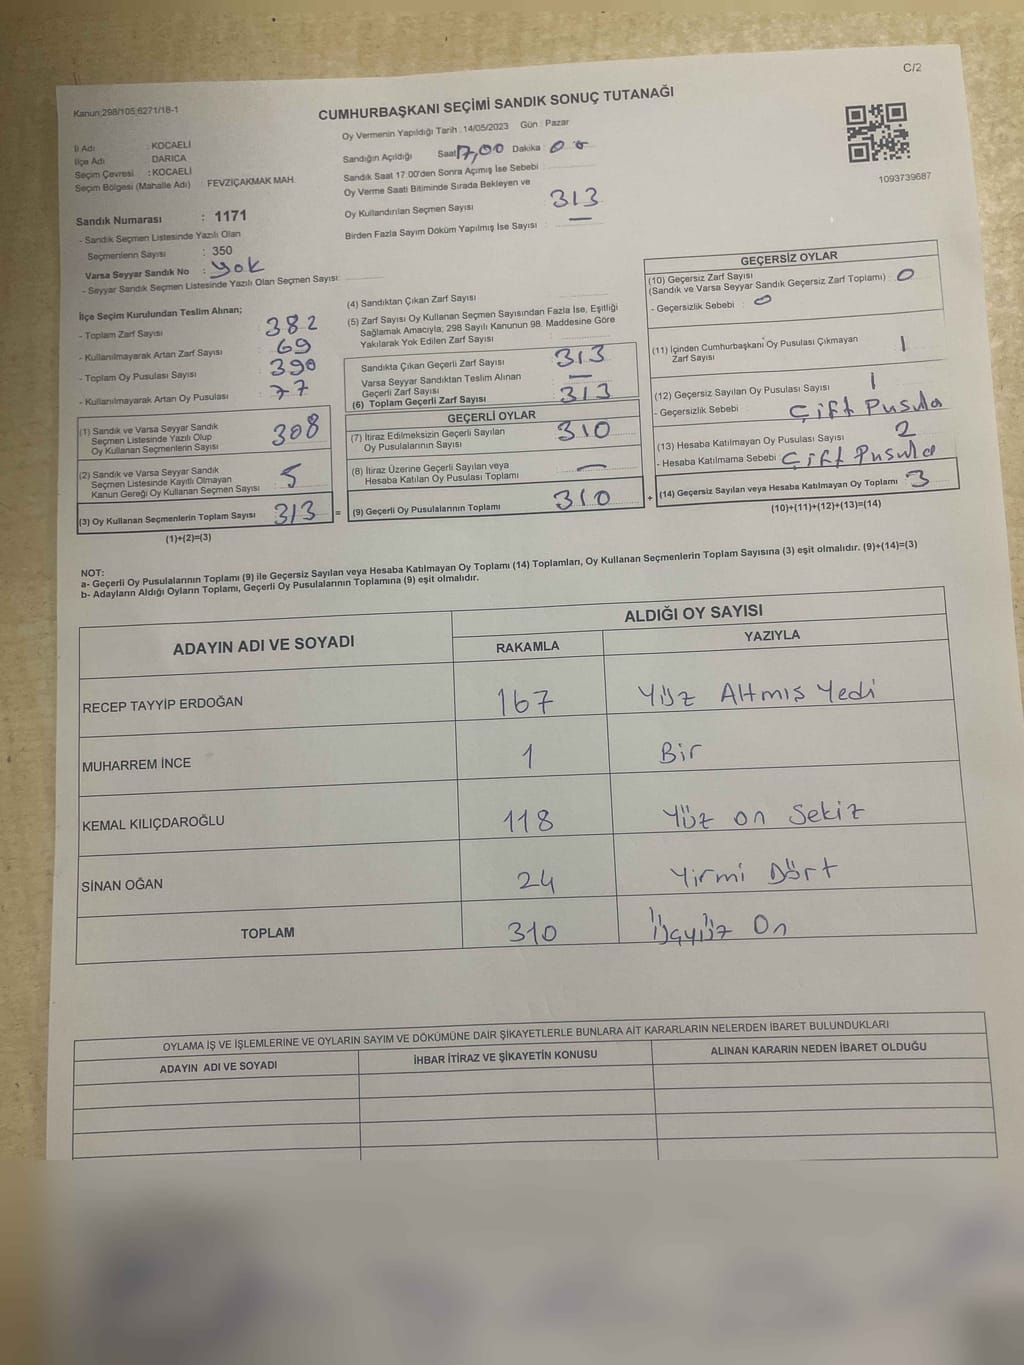 C/2
Kanun:298/105;6271/18-1
CUMHURBAŞKANI SEÇİMİ SANDIK SONUÇ TUTANAĞI
Oy Vermenin Yapıldığı Tarih : 14/05/2023 Gün : Pazar
İl Adı : KOCAELİ
İlçe Adı : DARICA
Seçim Çevresi : KOCAELİ
Seçim Bölgesi (Mahalle Adı) : FEVZİÇAKMAK MAH.
Sandık Numarası : 1171
- Sandık Seçmen Listesinde Yazılı Olan
Seçmenlerin Sayısı : 350
Varsa Seyyar Sandık No : Yok
- Seyyar Sandık Seçmen Listesinde Yazılı Olan Seçmen Sayısı:
Sandığın Açıldığı Saat 17,00 Dakika : 00
Sandık Saat 17:00'den Sonra Açılmış İse Sebebi
Oy Verme Saati Bitiminde Sırada Bekleyen ve
Oy Kullandırılan Seçmen Sayısı 313
Birden Fazla Sayım Döküm Yapılmış İse Sayısı : —
1093739687
İlçe Seçim Kurulundan Teslim Alınan;
- Toplam Zarf Sayısı : 382
- Kullanılmayarak Artan Zarf Sayısı : 69
- Toplam Oy Pusulası Sayısı : 390
- Kullanılmayarak Artan Oy Pusulası : 77
(1) Sandık ve Varsa Seyyar Sandık
Seçmen Listesinde Yazılı Olup
Oy Kullanan Seçmenlerin Sayısı 308
(2) Sandık ve Varsa Seyyar Sandık
Seçmen Listesinde Kayıtlı Olmayan
Kanun Gereği Oy Kullanan Seçmen Sayısı 5
(3) Oy Kullanan Seçmenlerin Toplam Sayısı 313
(1)+(2)=(3)
(4) Sandıktan Çıkan Zarf Sayısı
(5) Zarf Sayısı Oy Kullanan Seçmen Sayısından Fazla İse, Eşitliği
Sağlamak Amacıyla; 298 Sayılı Kanunun 98. Maddesine Göre
Yakılarak Yok Edilen Zarf Sayısı
Sandıkta Çıkan Geçerli Zarf Sayısı 313
Varsa Seyyar Sandıktan Teslim Alınan
Geçerli Zarf Sayısı —
(6) Toplam Geçerli Zarf Sayısı 313
GEÇERLİ OYLAR
(7) İtiraz Edilmeksizin Geçerli Sayılan
Oy Pusulalarının Sayısı 310
(8) İtiraz Üzerine Geçerli Sayılan veya
Hesaba Katılan Oy Pusulası Toplamı —
= (9) Geçerli Oy Pusulalarının Toplamı 310
GEÇERSİZ OYLAR
(10) Geçersiz Zarf Sayısı
(Sandık ve Varsa Seyyar Sandık Geçersiz Zarf Toplamı) : 0
- Geçersizlik Sebebi : 0
(11) İçinden Cumhurbaşkanı Oy Pusulası Çıkmayan
Zarf Sayısı 1
(12) Geçersiz Sayılan Oy Pusulası Sayısı 1
- Geçersizlik Sebebi : Çift Pusula
(13) Hesaba Katılmayan Oy Pusulası Sayısı 2
- Hesaba Katılmama Sebebi : Çift Pusula
+ (14) Geçersiz Sayılan veya Hesaba Katılmayan Oy Toplamı 3
(10)+(11)+(12)+(13)=(14)
NOT:
a- Geçerli Oy Pusulalarının Toplamı (9) ile Geçersiz Sayılan veya Hesaba Katılmayan Oy Toplamı (14) Toplamları, Oy Kullanan Seçmenlerin Toplam Sayısına (3) eşit olmalıdır. (9)+(14)=(3)
b- Adayların Aldığı Oyların Toplamı, Geçerli Oy Pusulalarının Toplamına (9) eşit olmalıdır.
ADAYIN ADI VE SOYADI
ALDIĞI OY SAYISI
RAKAMLA YAZIYLA
RECEP TAYYİP ERDOĞAN 167 Yüz Altmış Yedi
MUHARREM İNCE 1 Bir
KEMAL KILIÇDAROĞLU 118 Yüz on Sekiz
SİNAN OĞAN 24 Yirmi Dört
TOPLAM 310 Üçyüz On
OYLAMA İŞ VE İŞLEMLERİNE VE OYLARIN SAYIM VE DÖKÜMÜNE DAİR ŞİKAYETLERLE BUNLARA AİT KARARLARIN NELERDEN İBARET BULUNDUKLARI
ADAYIN ADI VE SOYADI İHBAR İTİRAZ VE ŞİKAYETİN KONUSU ALINAN KARARIN NEDEN İBARET OLDUĞU